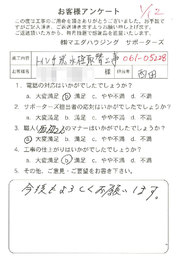 お客様アンケート
1/12
この度は工事のご用命を頂きありがとうございました。お手数で
すがご記入済み、ご返送頂きます様お願い申し上げます。
㈱マエダハウジング サポーターズ
工事内容 トイレ手洗水栓取替工事 061-05228
お名前 様 担当者 西田
1. 電話の対応はいかがでしたでしょうか?
a. 大変満足 b. 満足 c. やや不満 d. 不満
2. サポーターズ担当者の対応はいかがでしたでしょうか?
a. 大変満足 b. 満足 c. やや不満 d. 不満
3. 職人 のマナーはいかがでしたでしょうか?
a. 大変満足 b. 満足 c. やや不満 d. 不満
4. 工事の仕上がりはいかがでしたでしょうか?
a. 大変満足 b. 満足 c. やや不満 d. 不満
5. その他、ご意見・ご要望をお書き下さい
今後ともよろしくお願いします。